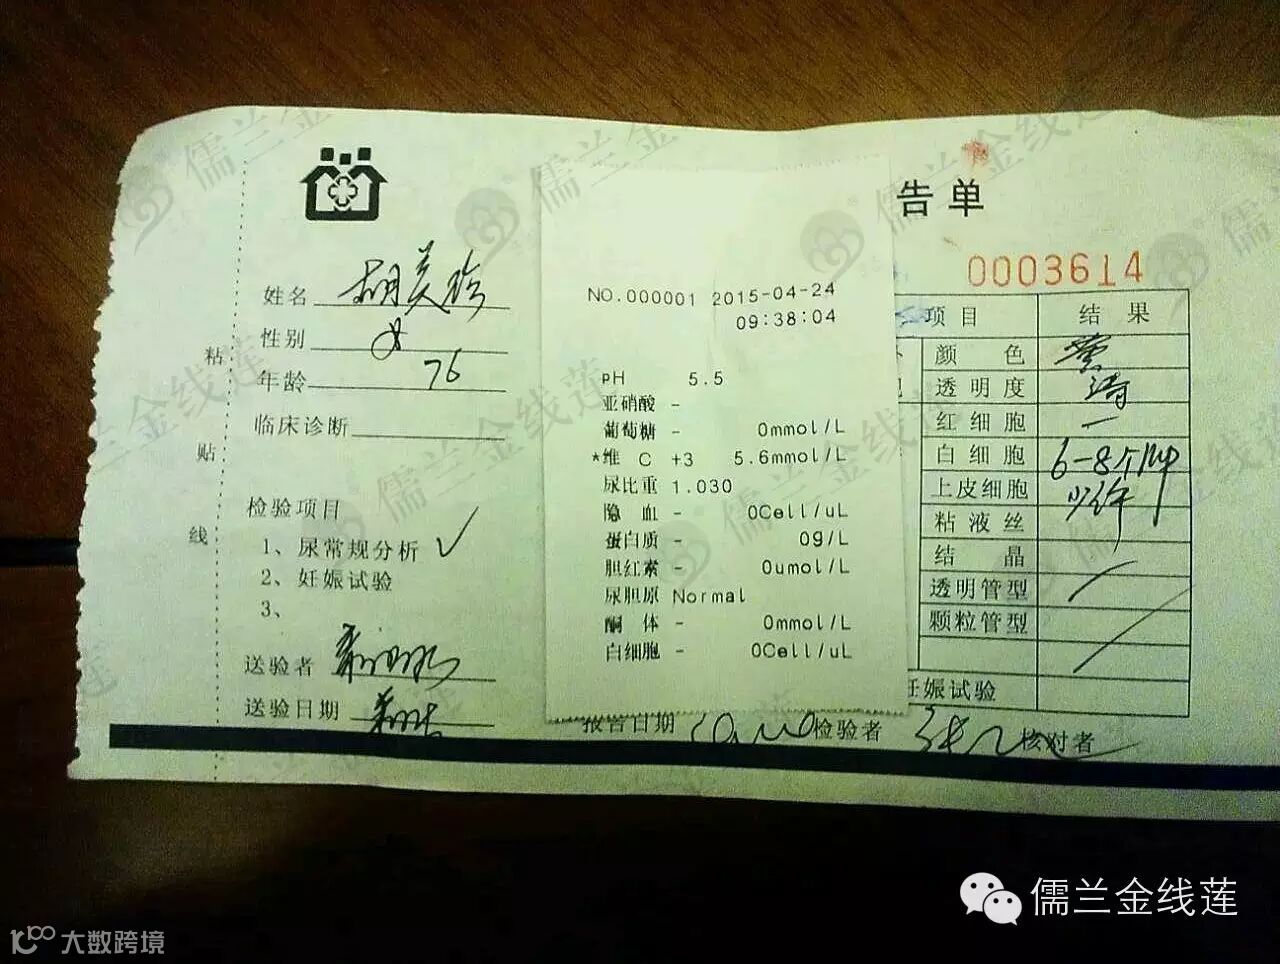 告单
0003614
姓名 胡美珍
性别 女
年龄 76
临床诊断
粘贴线
检验项目
1、尿常规分析 √
2、妊娠试验
3、
送验者
送验日期
NO.000001 2015-04-24
09:38:04
pH 5.5
亚硝酸 -
葡萄糖 - 0mmol/L
*维 C +3 5.6mmol/L
尿比重 1.030
隐 血 - 0Cell/uL
蛋白质 - 0g/L
胆红素 - 0umol/L
尿胆原 Normal
酮 体 - 0mmol/L
白细胞 - 0Cell/uL
项目 结果
颜色 黄
透明度 清
红细胞 一
白细胞 6-8个/HP
上皮细胞 少许
粘液丝
结晶
透明管型
颗粒管型
妊娠试验
报告日期 检验者 核对者
儒兰金线莲
大数跨境